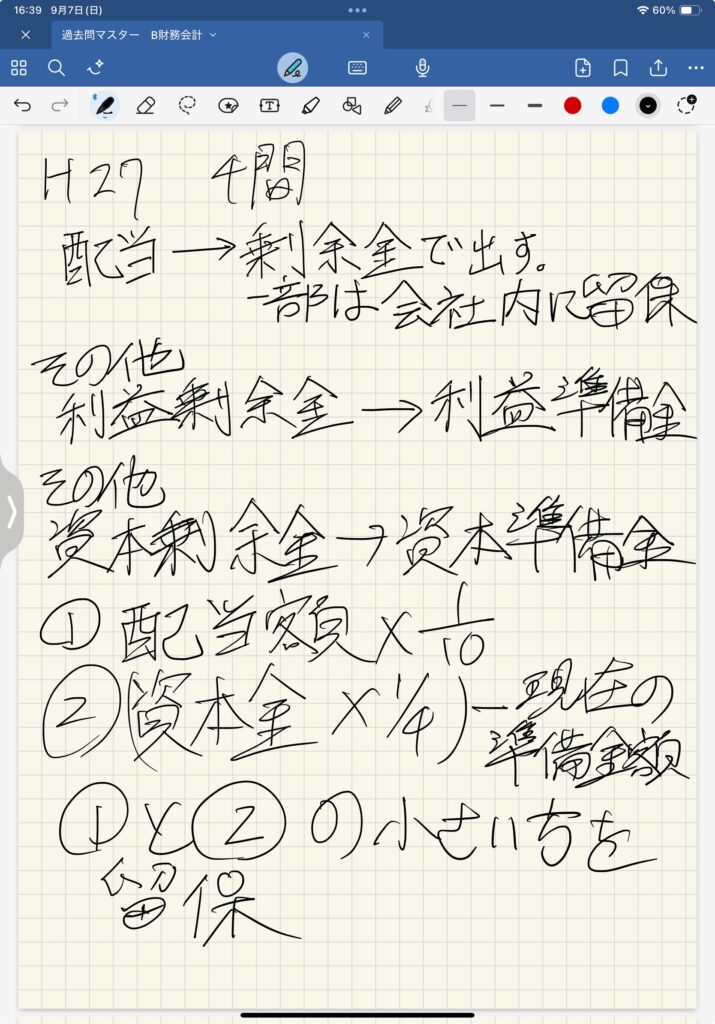 16:39 9月7日(日)
60%
過去問マスター B財務会計
H27 4問
配当→剰余金で出す。
一部は会社内に留保
その他
利益剰余金→利益準備金
その他
資本剰余金→資本準備金
① 配当額×1/10
②(資本金×1/4)-現在の
準備金額
①と②の小さい方を
留保